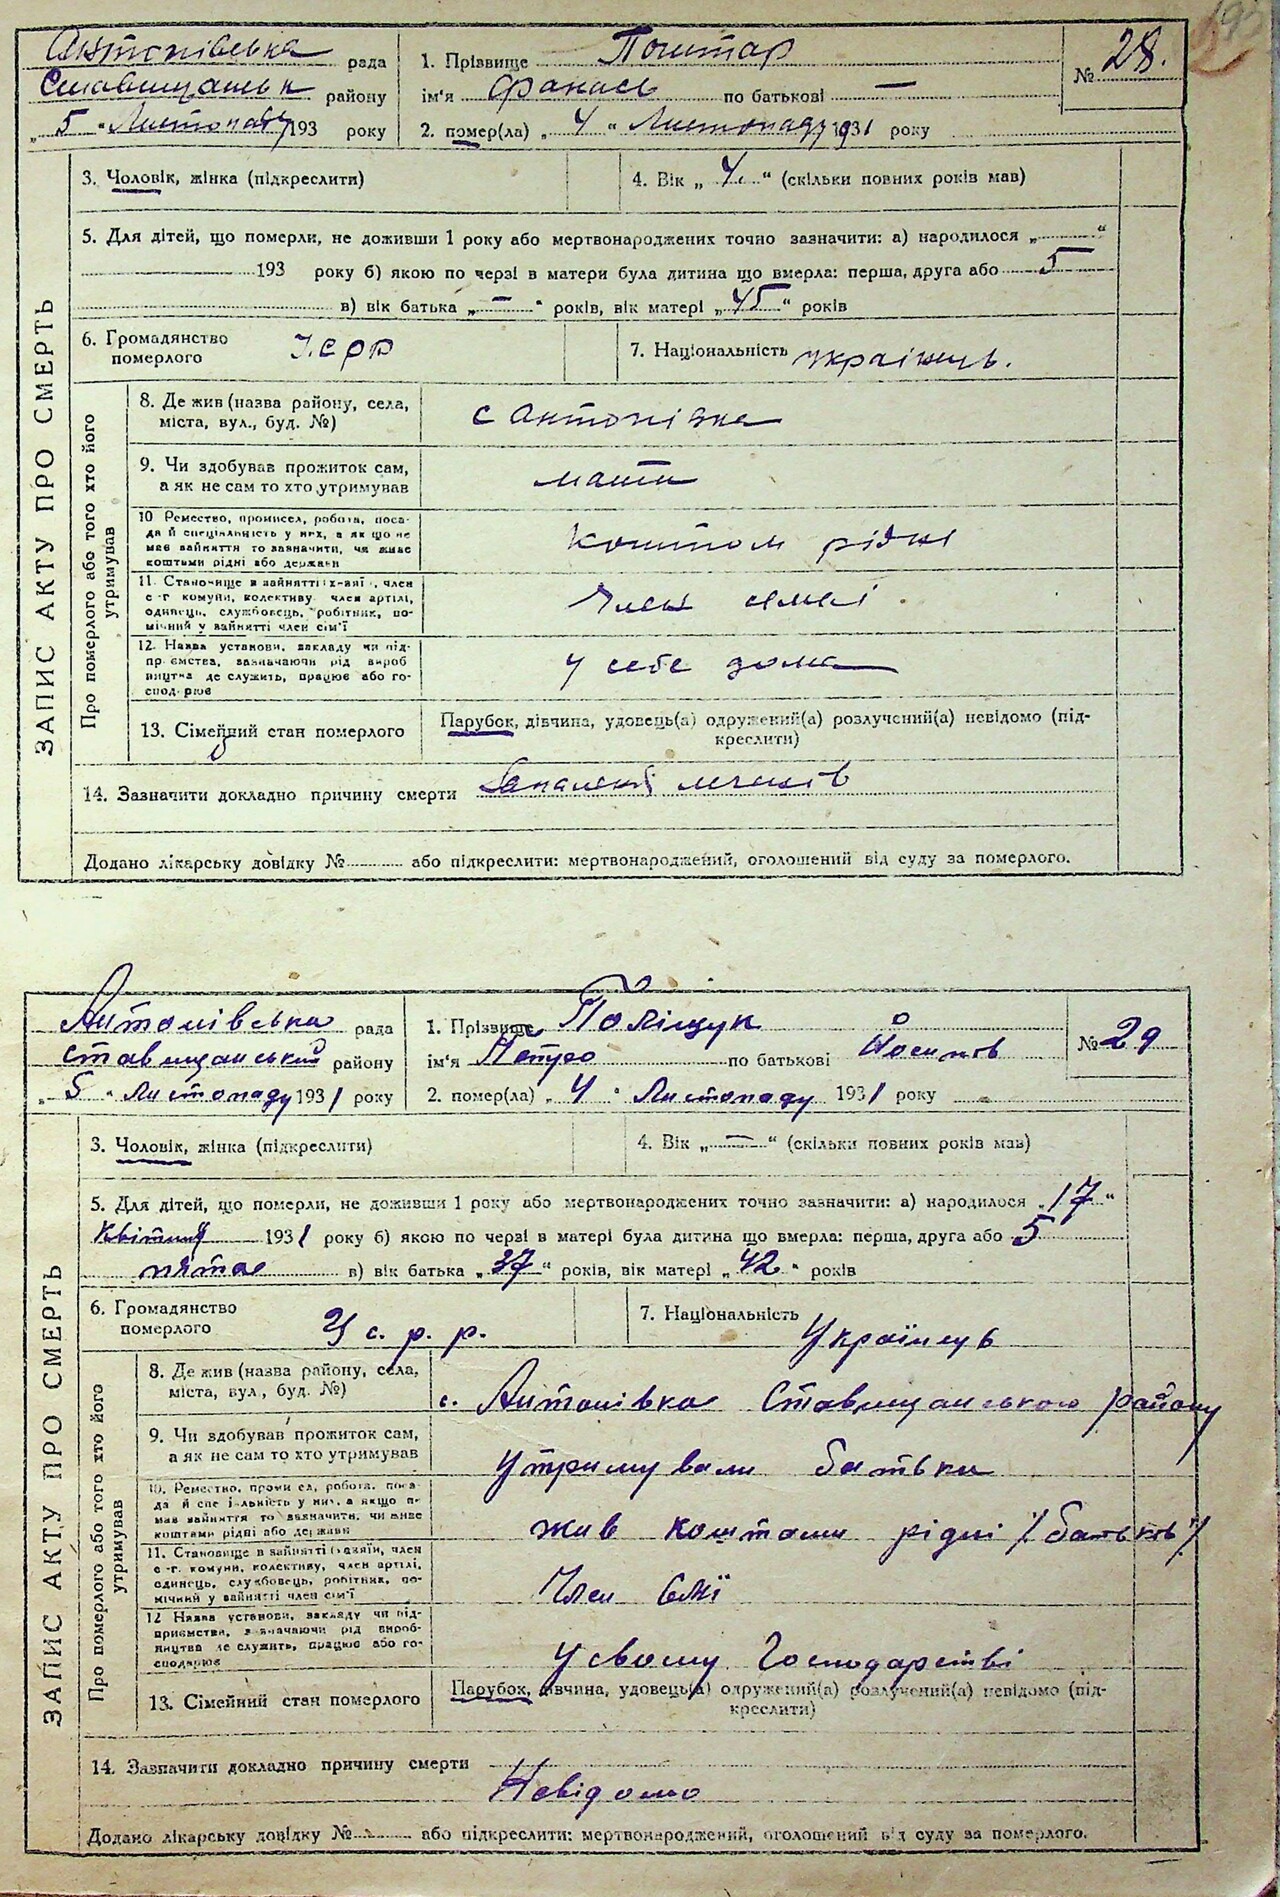 Антонівська рада
Ставищанськ району
„ 5 “ Листопаду 193 року
1. Прізвище Поштар
ім'я Фанась по батькові —
2. помер(ла) „ 4 “ Листопаду 1931 року
№ 28.
3. Чоловік, жінка (підкреслити)
4. Вік „ 4. “ (скільки повних років мав)
5. Для дітей, що померли, не доживши 1 року або мертвонароджених точно зазначити: а) народилося „ “
193 року б) якою по черзі в матери була дитина що вмерла: перша, друга або 5
в) вік батька „ — “ років, вік матері „ 45 “ років
6. Громадянство
померлого
УСРР
7. Національність українець.
ЗАПИС АКТУ ПРО СМЕРТЬ
Про померлого або того хто його
утримував
8. Де жив (назва району, села,
міста, вул., буд. №)
с Антонівка
9. Чи здобував прожиток сам,
а як не сам то хто утримував
мати
10 Ремество, промисел, робота, поса-
да й спеціяльність у них, а як що не
має зайняття то зазначити, чи живе
коштами рідні або держави
коштом рідні
11. Становище в зайнятті (х-вяї , член
с-г комуни, колективу член артілі,
одинець, службовець, робітник, по-
мічний у зайнятті член сім'ї
Член семї
12. Назва установи, закладу чи під-
приємства, зазначаючи рід вироб
ництва де служить, працює або го-
сподарює
у себе дома
13. Сімейний стан померлого
Парубок, дівчина, удовець(а) одружений(а) розлучений(а) невідомо (під-
креслити)
14. Зазначити докладно причину смерти
Додано лікарську довідку № або підкреслити: мертвонароджений, оголошений від суду за померлого.
Антонівська рада
Ставищанський району
„ 5 “ Листопаду 1931 року
1. Прізвище Поліщук
ім'я Петро по батькові Йосипів
2. помер(ла) „ 4 “ Листопаду 1931 року
№ 29
3. Чоловік, жінка (підкреслити)
4. Вік „ — “ (скільки повних років мав)
5. Для дітей, що померли, не доживши 1 року або мертвонароджених точно зазначити: а) народилося „ 17 “
Квітня 1931 року б) якою по черзі в матері була дитина що вмерла: перша, друга або 5
пятае в) вік батька „ 37 “ років, вік матері „ 42 “ років
6. Громадянство
померлого
У с. р. р.
7. Національність Українець
ЗАПИС АКТУ ПРО СМЕРТЬ
Про померлого або того хто його
утримував
8. Де жив (назва району, села,
міста, вул., буд. №)
с. Антонівка Ставищанського району
9. Чи здобував прожиток сам,
а як не сам то хто утримував
Утримували батьки
10. Ремество, промисел, робота, поса-
да й спеціяльність у них, а якщо не
має зайняття то зазначити, чи живе
коштами рідні або держави
жив коштами рідні /батьків/
11. Становище в зайнятті (хазяїн, член
с-г. комуни, колективу, член артілі,
одинець, службовець, робітник, по-
мічний у зайнятті член сім'ї
Член Семї
12 Назва установи, закладу чи під-
приємства, зазначаючи рід вироб-
ництва де служить, працює або го-
сподарює
У своєму Господарстві
13. Сімейний стан померлого
Парубок, дівчина, удовець(а) одружений(а) розлучений(а) невідомо (під-
креслити)
14. Зазначити докладно причину смерти
Невідомо
Додано лікарську довідку № або підкреслити: мертвонароджений, оголошений від суду за померлого.